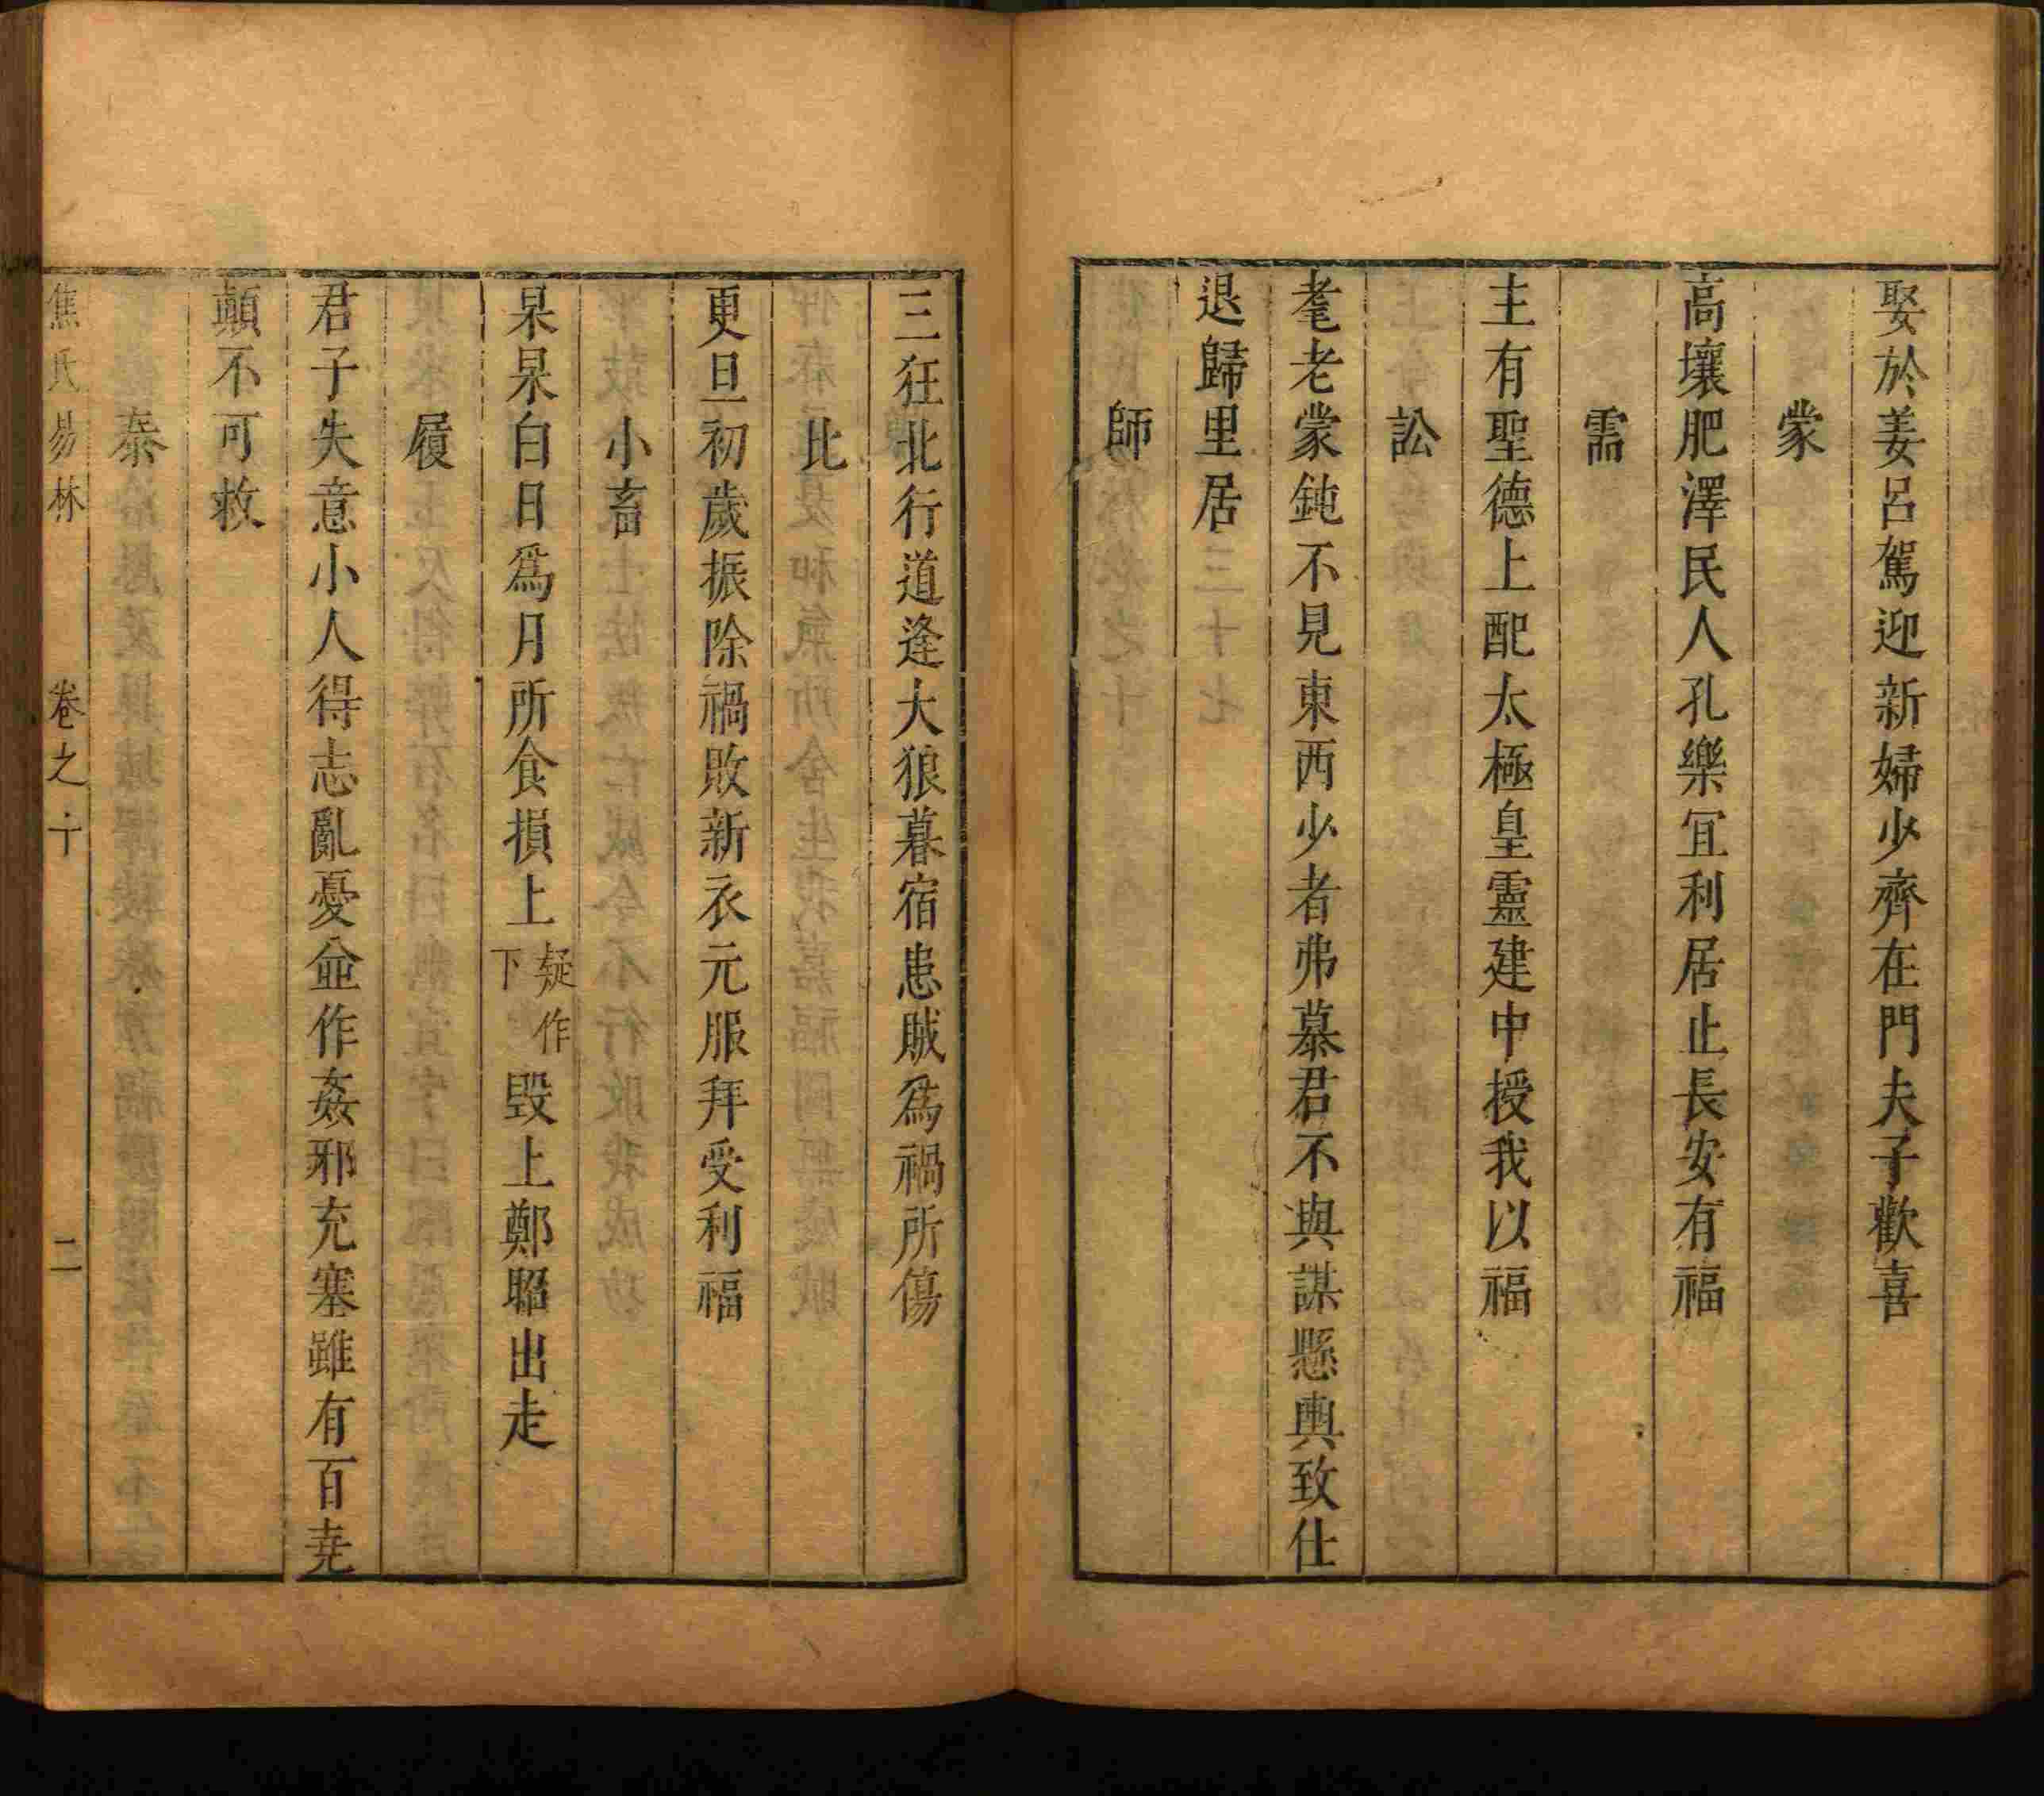 娶於姜呂駕迎新婦少齊在門夫子歡喜
蒙
高壤肥澤民人孔樂宜利居止長安有福
需
主有聖德上配太極皇靈建中授我以福
訟
耄老蒙鈍不見東西少者弗慕君不與謀懸輿致仕
退歸里居
師
三狂北行道逢大狼暮宿患賊為禍所傷
比
更旦初歲振除禍敗新衣元服拜受利福
小畜
杲杲白日爲月所食損上疑作下毀上鄭昭出走
履
君子失意小人得志亂憂並作姦邪充塞雖有百堯
顛不可救
泰
焦氏易林 卷之十 二